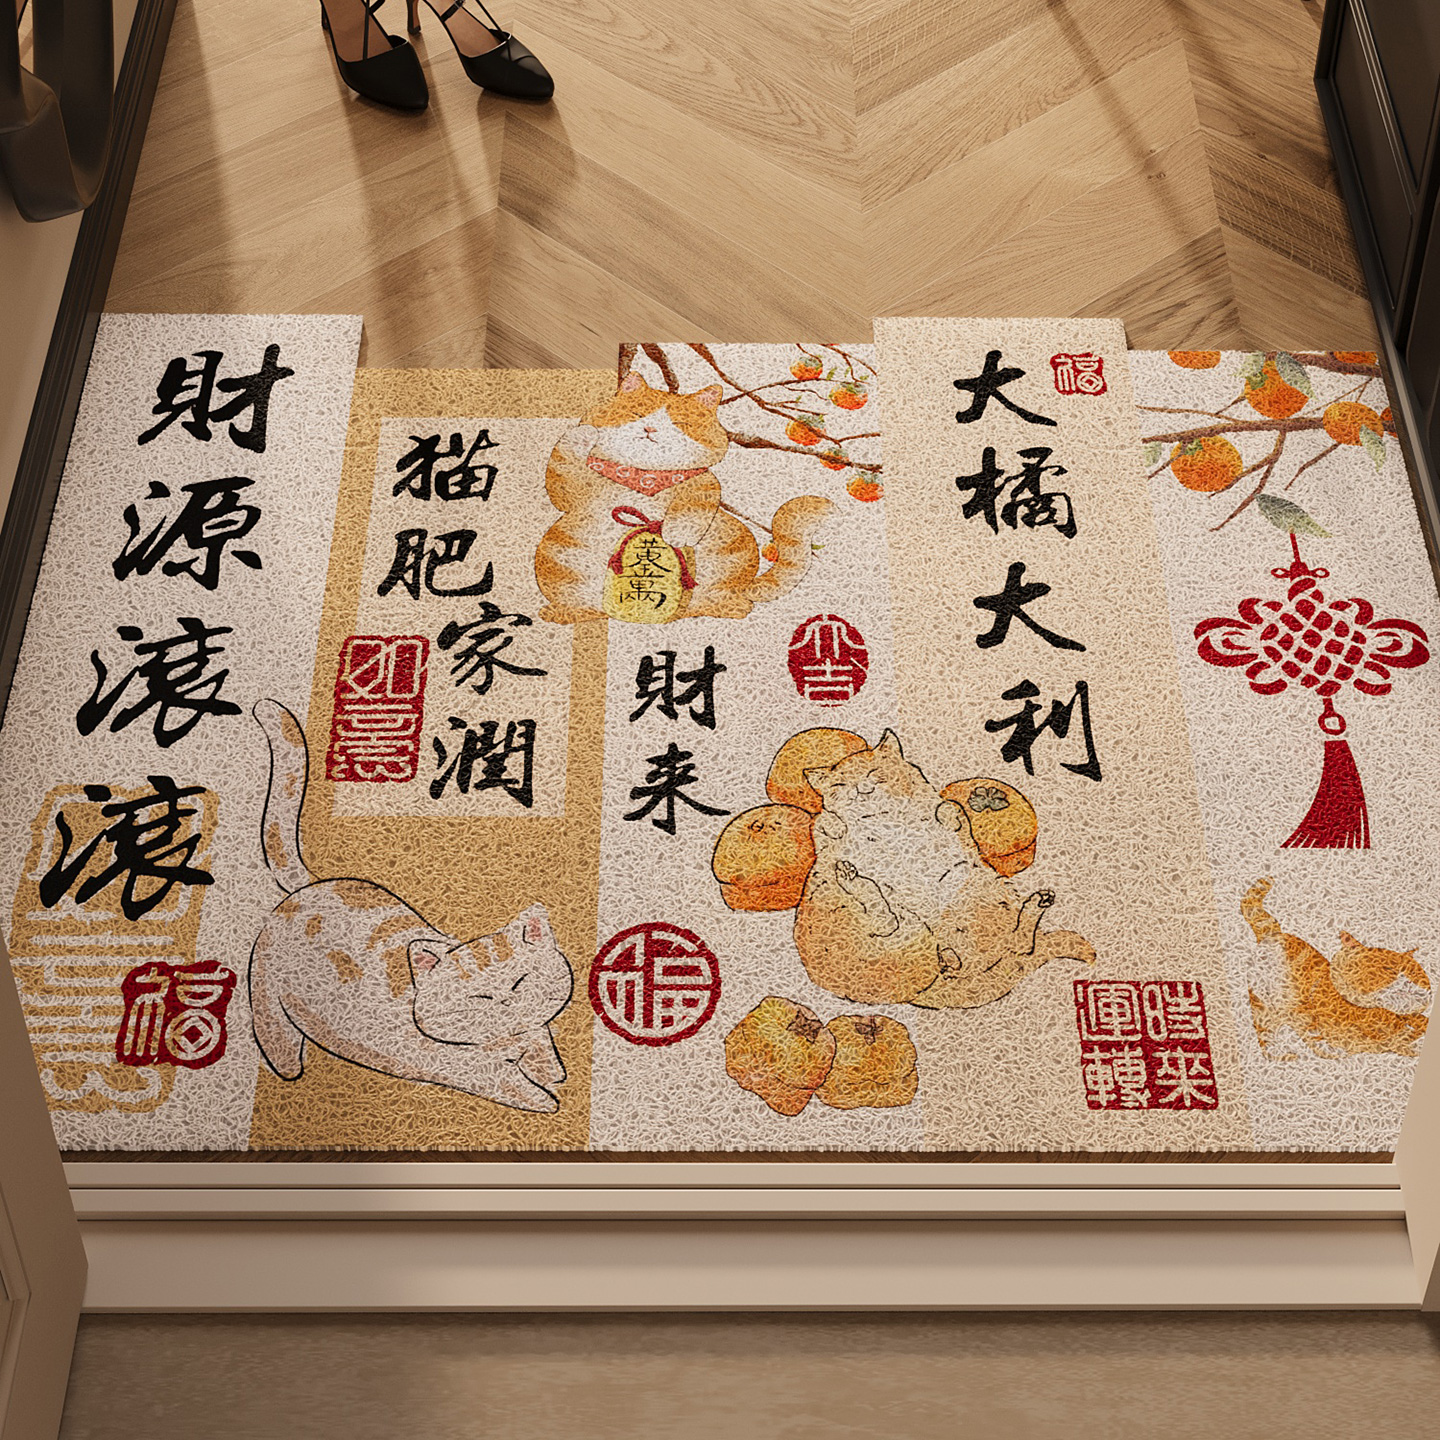 財源滾滾
福
猫肥家潤
如意
黄金萬
財来
大吉
福
大橘大利
福
時來運轉